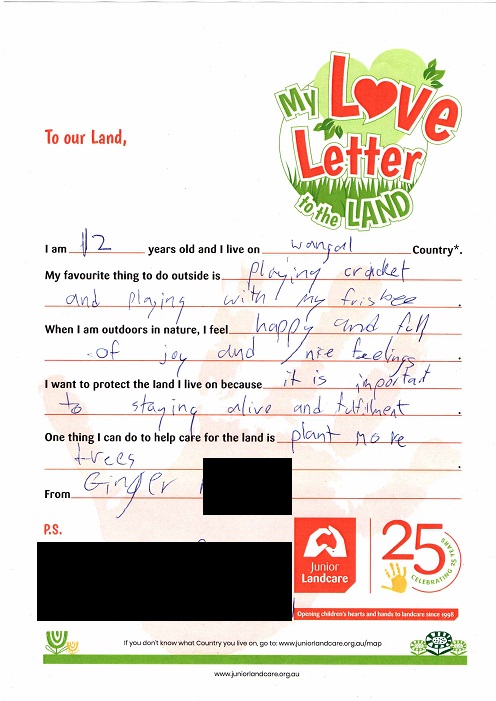 My Love
Letter
to the LAND
To our Land,
I am 12 years old and I live on wangal Country*.
My favourite thing to do outside is playing cricket
and playing with my frisbee.
When I am outdoors in nature, I feel happy and full
of joy and nice feelings.
I want to protect the land I live on because it is important
to staying alive and fulfilment.
One thing I can do to help care for the land is plant more
trees.
From Ginger
P.S.
Junior
Landcare
25
CELEBRATING 25 YEARS
Opening children's hearts and hands to landcare since 1998
If you don't know what Country you live on, go to: www.juniorlandcare.org.au/map
www.juniorlandcare.org.au